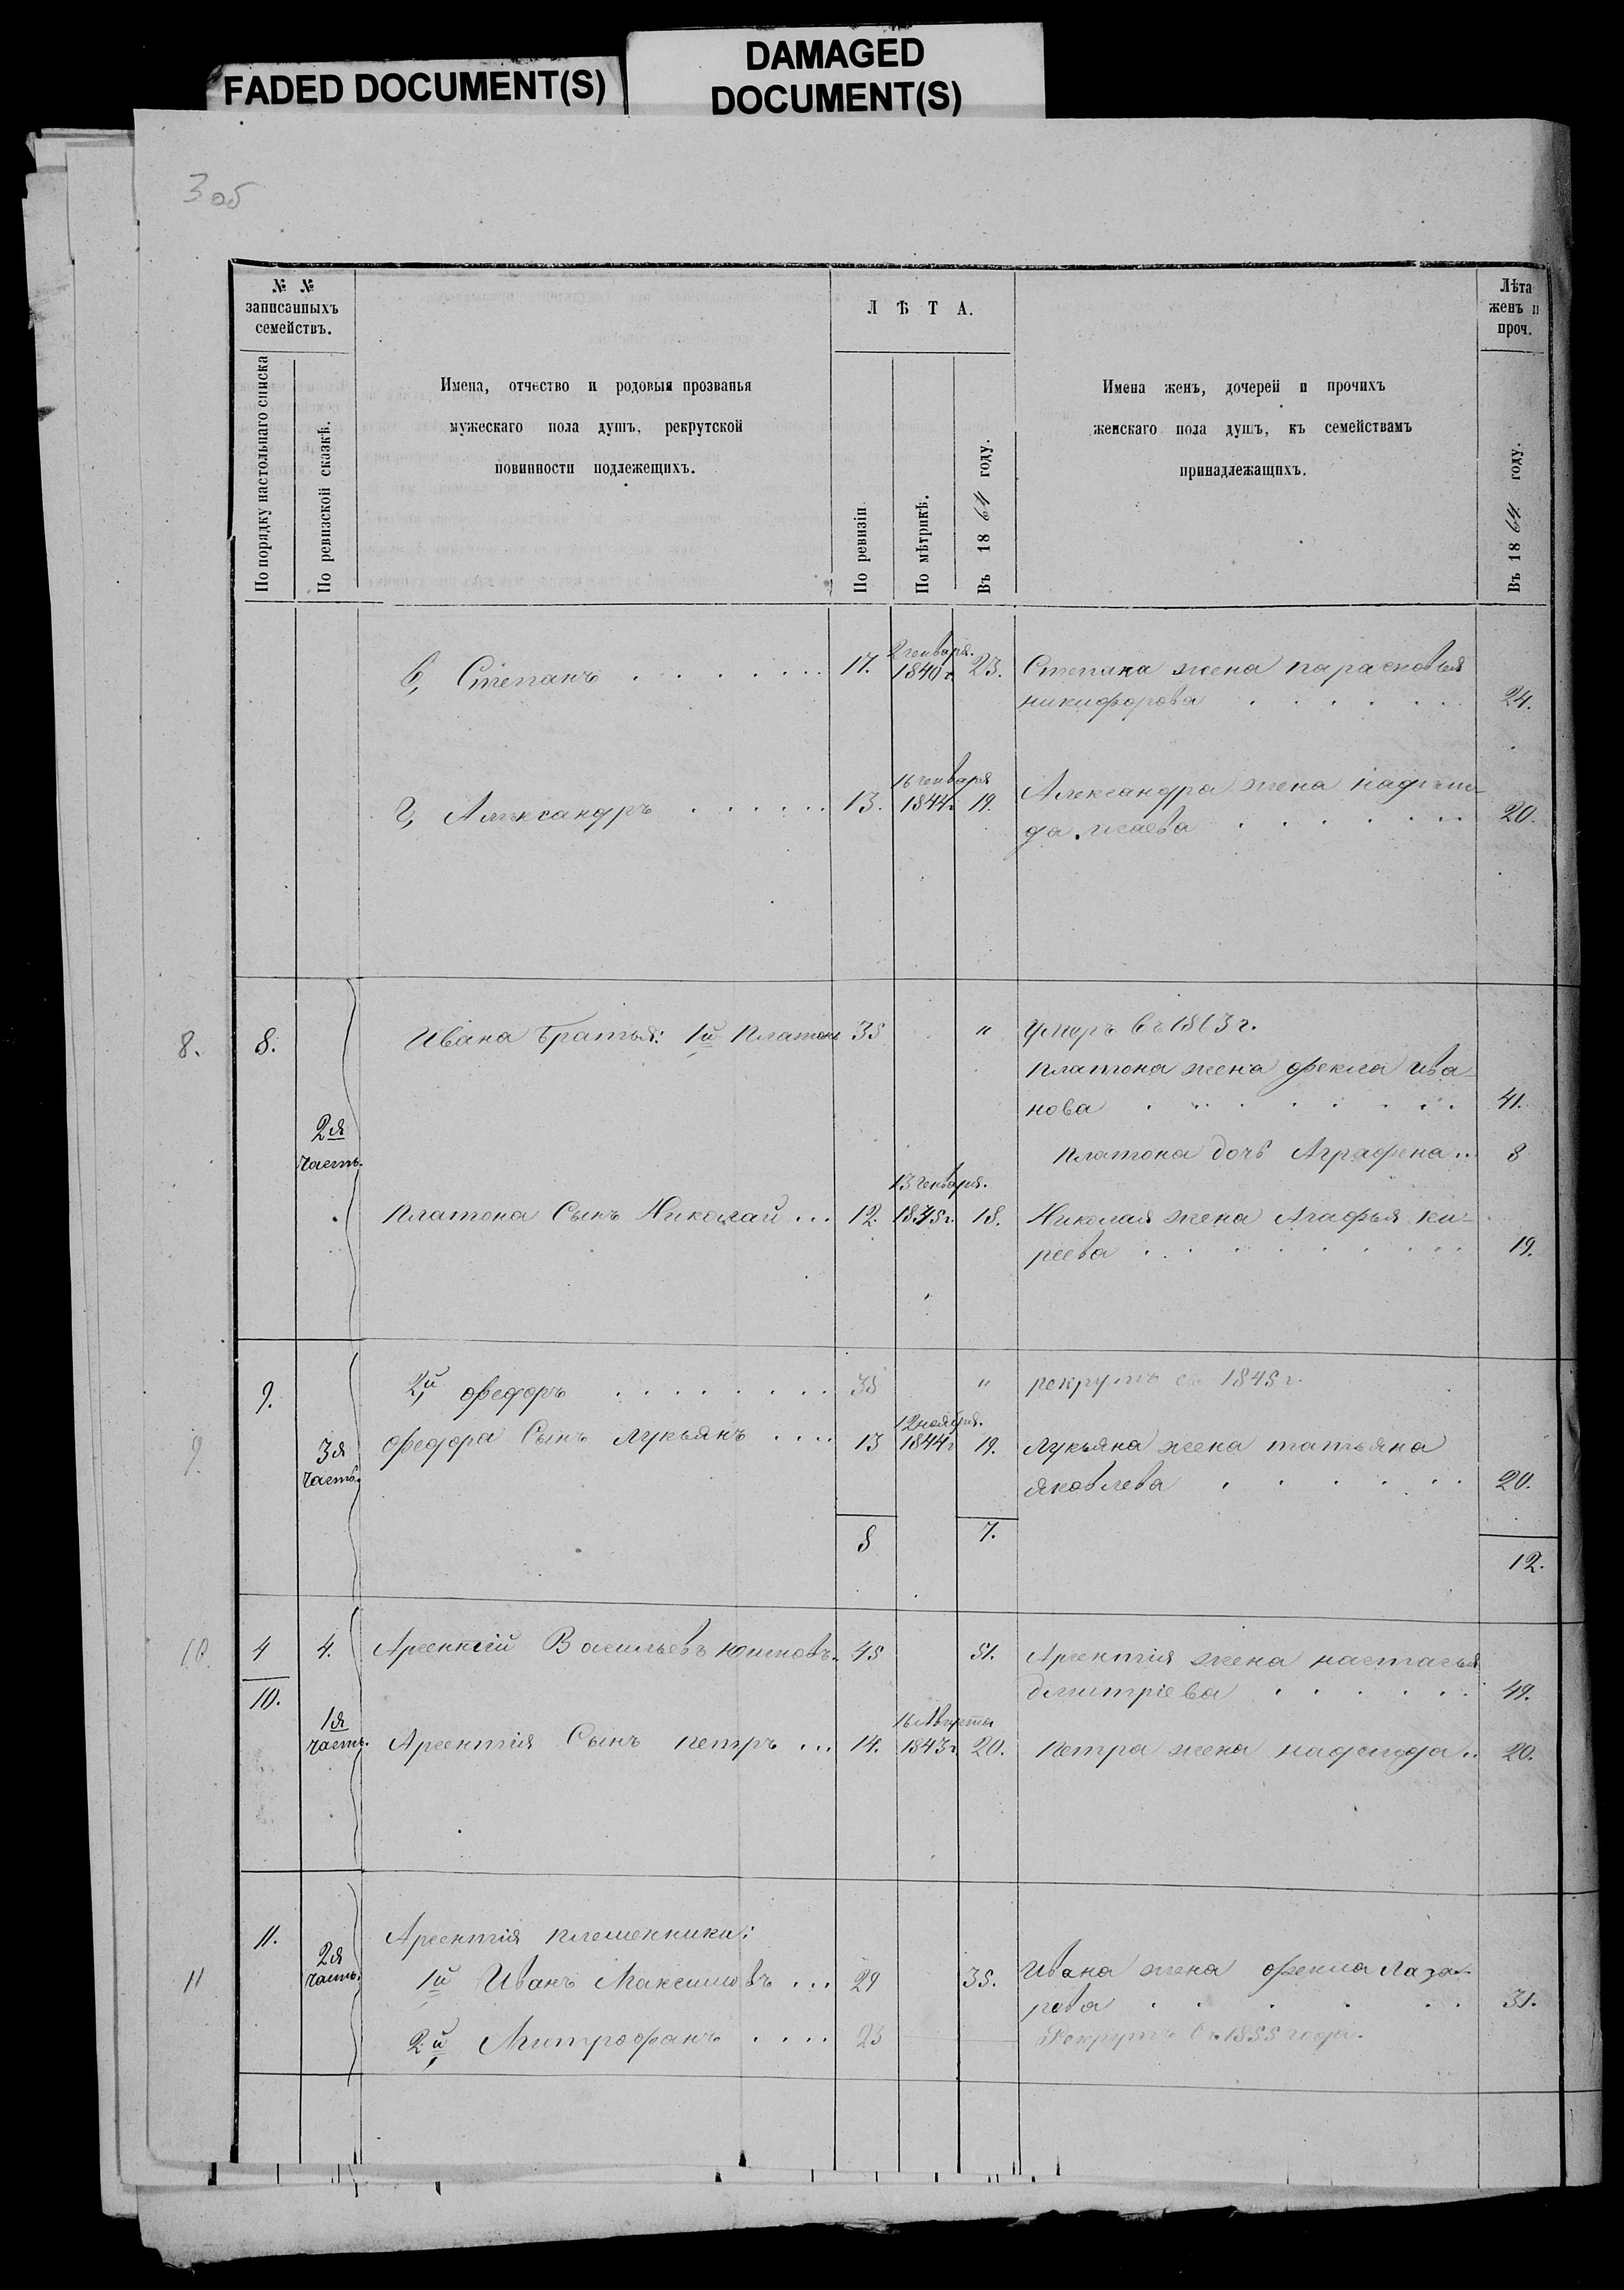 FADED DOCUMENT(S)
DAMAGED
DOCUMENT(S)
3 об
№ №
записанныхъ
семействъ.
По порядку настольнаго списка
По ревизской сказкѣ.
Имена, отчество и родовыя прозванья
мужескаго пола душъ, рекрутской
повинности подлежещихъ.
ЛѢТА.
По ревизіи
По мѣтрикѣ.
Въ 1864 году.
Имена женъ, дочерей и прочихъ
женскаго пола душъ, къ семействамъ
принадлежащихъ.
Лѣта
женъ и
проч.
Въ 1864 году.
в, Степанъ . . . . . . 17. 2 генваря. 1840 г. 23. Степана жена парасковья
никифорова . . . . . . 24.
г, Александръ . . . . . . 13. 16 генваря 1844 г. 19. Александра жена
да исаева . . . . . . 20.
8. 8. Ивана Братья: 1й Платонъ 35 " Умеръ въ 1863 г.
платона жена фекла Ива-
нова . . . . . . . 41.
2я
часть.
платона дочь Аграфена .. 8
платона Сынъ Николай ... 12. 13 генваря. 1845 г. 18. Николая жена Агафья ки-
реева . . . . . . . 19.
9. 2й федоръ . . . . . . . 38 " рекрутъ съ 1845 г.
9. 3я
часть.
федора Сынъ лукьянъ .... 13 12 ноября. 1844 г. 19. лукьяна жена татьяна
яковлева . . . . . . 20.
8 7.
12.
10. 4 4. Арсентій Васильевъ 45 51. Арсентія жена настасья
дмитріева . . . . . 49.
10.
1я
часть.
Арсентія Сынъ петръ ... 14. 16 Августа 1843 г. 20. петра жена надежда .. 20.
11. Арсентія племенники:
11 2я
часть.
1й Иванъ Максимовъ ... 29 35. Ивана жена фекла Лаза-
рова . . . . . . 31.
2й Митрофанъ .... 23 Рекрутъ съ 1855 года.